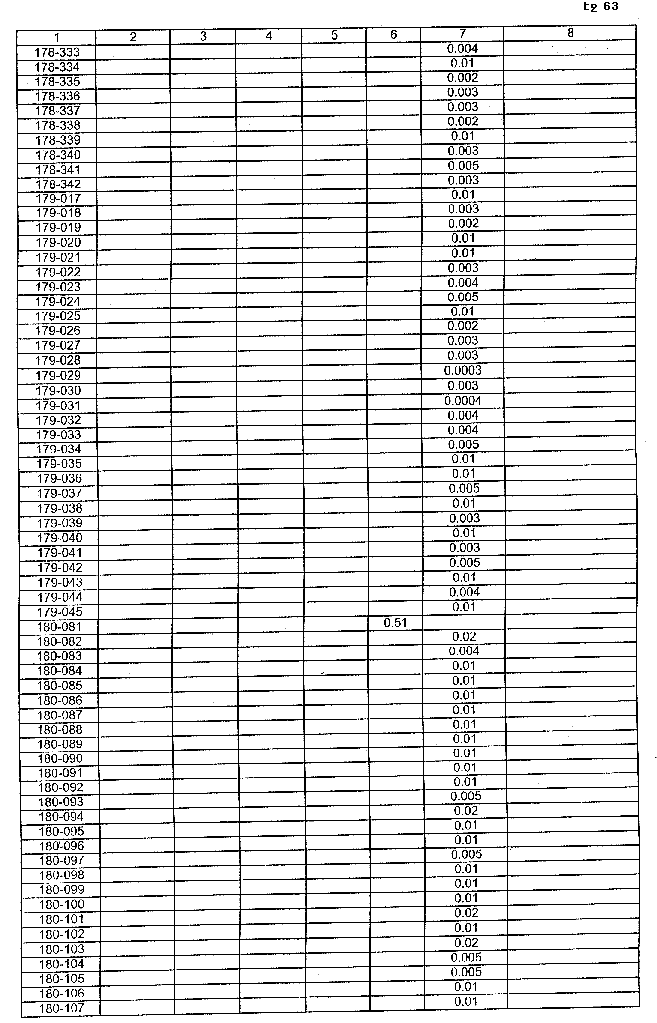 Էջ 63
1 2 3 4 5 6 7 8
178-333 0.004
178-334 0.01
178-335 0.002
178-336 0.003
178-337 0.003
178-338 0.002
178-339 0.01
178-340 0.003
178-341 0.005
178-342 0.003
179-017 0.01
179-018 0.003
179-019 0.002
179-020 0.01
179-021 0.01
179-022 0.003
179-023 0.004
179-024 0.005
179-025 0.01
179-026 0.002
179-027 0.003
179-028 0.003
179-029 0.0003
179-030 0.003
179-031 0.0004
179-032 0.004
179-033 0.004
179-034 0.005
179-035 0.01
179-036 0.01
179-037 0.005
179-038 0.01
179-039 0.003
179-040 0.01
179-041 0.003
179-042 0.005
179-043 0.01
179-044 0.004
179-045 0.01
180-081 0.51
180-082 0.02
180-083 0.004
180-084 0.01
180-085 0.01
180-086 0.01
180-087 0.01
180-088 0.01
180-089 0.01
180-090 0.01
180-091 0.01
180-092 0.01
180-093 0.005
180-094 0.02
180-095 0.01
180-096 0.01
180-097 0.005
180-098 0.01
180-099 0.01
180-100 0.01
180-101 0.02
180-102 0.01
180-103 0.02
180-104 0.005
180-105 0.005
180-106 0.01
180-107 0.01